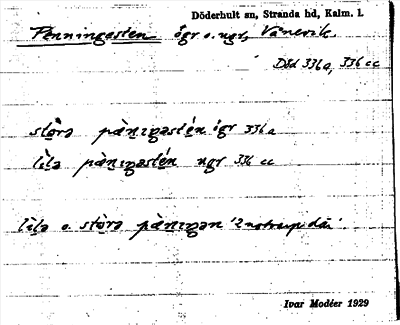 Döderhult sn, Stranda hd, Kalm. l.
Penningasten ögr o. ngr, Vånevik.
Död 336a, 336 cc
stòrə pæ̀nıgastén ögr 336a
lìlə pæ̀nıgastén ngr 336 cc
lìlə o. stòrə pæ̀nıgən
Ivar Modéer 1929